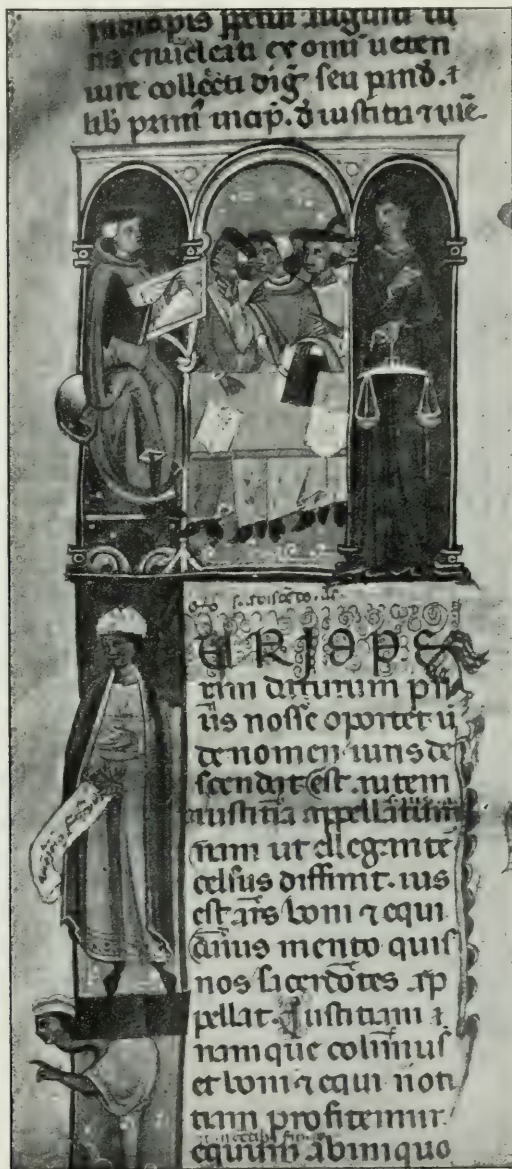 principis
na enucleati ex omi ueteri
iure collecti dig seu pand. ⁊
lib prim incip. d iusticia ⁊ iure
URI OPE
ram daturum pri
us nosse oportet u
de nomen iuris de
scendat Est autem
iusticia appellatum
nam ut eleganter
celsus diffinit. ius
est ars boni ⁊ equi
cuius merito quis
nos sacerdotes ap
pellat. Iusticiam
namque colimus
et boni ⁊ equi noti
tiam profitemur
equum ab iniquo